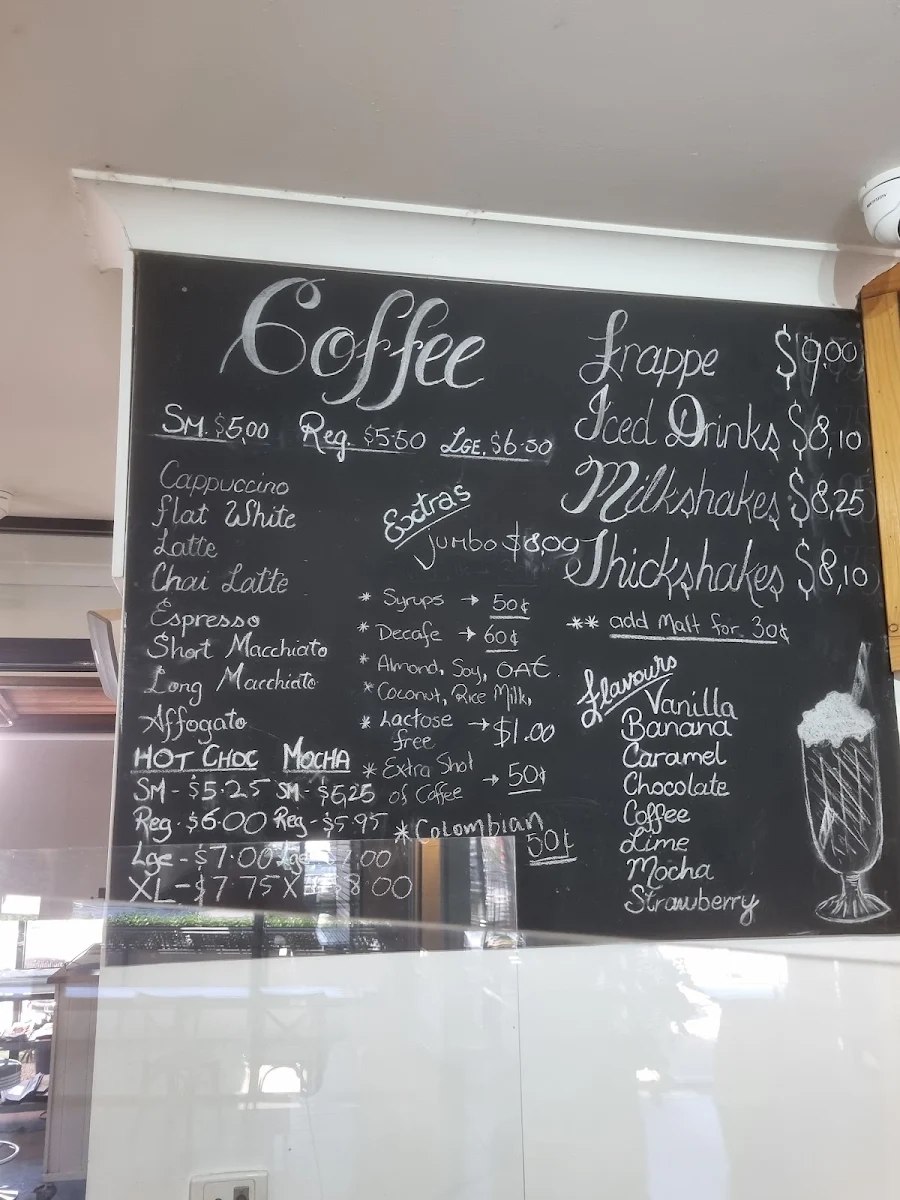 Coffee
SM. $5,00 Reg. $5.50 LGE. $6.50
Cappuccino
Flat White
Latte
Chai Latte
Espresso
Short Macchiato
Long Macchiato
Affogato
HOT CHOC MOCHA
SM - $5.25 SM - $5,25
Reg - $6.00 Reg - $5.95
Lge - $7.00 Lge $7.00
XL - $7.75 X $8.00
Extras
Jumbo $8,00
* Syrups → 50¢
* Decafe → 60¢
* Almond, Soy, OAT
* Coconut, Rice Milk,
* Lactose
free → $1.00
* Extra Shot
of Coffee → 50¢
* Colombian
50¢
Frappe $9.00
Iced Drinks $8,10
Milkshakes $8,25
Thickshakes $8,10
** add Malt for 30¢
Flavours
Vanilla
Banana
Caramel
Chocolate
Coffee
Lime
Mocha
Strawberry